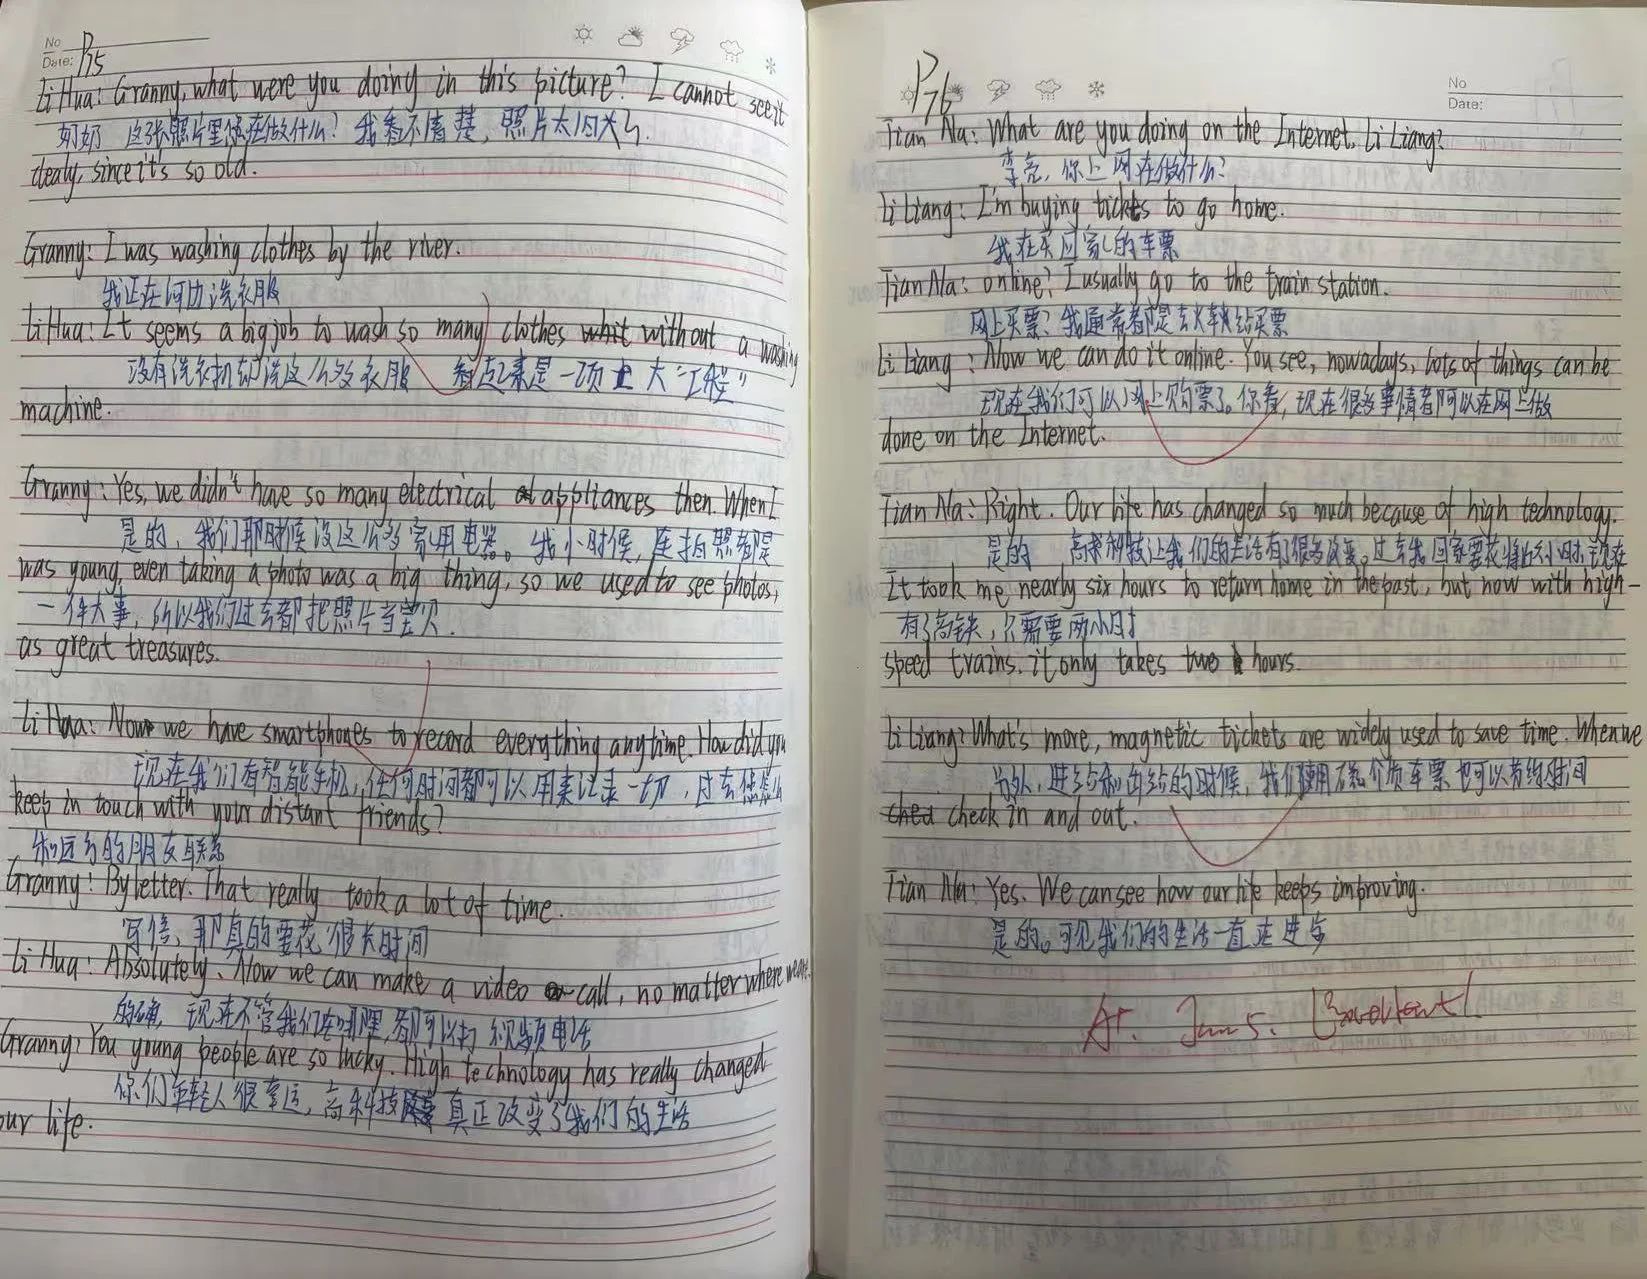 No
Date: P75
Li Hua: Granny, what were you doing in this picture? I cannot see it
奶奶 这张照片里您在做什么? 我看不清楚, 照片太旧了.
clealy, since it's so old.
Granny: I was washing clothes by the river.
我正在河边洗衣服
Li Hua: It seems a big job to wash so many clothes without a washing
没有洗衣机却洗这么多衣服 看起来是一项大“工程”
machine.
Granny: Yes, we didn't have so many electrical appliances then. When I
是的, 我们那时候没这么多家用电器。我小时候, 连拍照都是
was young, even taking a photo was a big thing, so we used to see photos,
一件大事, 所以我们过去都把照片当宝贝.
as great treasures.
Li Hua: Now we have smartphones to record everything anytime. How did you
现在我们有智能手机, 任何时间都可以用来记录一切, 过去您怎么
keep in touch with your distant friends?
和远方的朋友联系
Granny: By letter. That really took a lot of time.
写信, 那真的要花很长时间
Li Hua: Absolutely. Now we can make a video call, no matter where we are.
的确, 现在不管我们在哪里, 都可以打视频电话
Granny: You young people are so lucky. High technology has really changed
你们年轻人很幸运, 高科技真正改变了我们的生活
our life.
P76
No
Date:
Tian Na: What are you doing on the Internet, Li Liang?
李亮, 你上网在做什么?
Li Liang: I'm buying tickets to go home.
我在买回家的车票
Tian Na: online? I usually go to the train station.
网上买票? 我通常都是去火车站买票
Li Liang: Now we can do it online. You see, nowadays, lots of things can be
现在我们可以网上购票了。你看, 现在很多事情都可以在网上做
done on the Internet.
Tian Na: Right. Our life has changed so much because of high technology.
是的 高科技让我们的生活有了很多改变。过去我回家要花将近六小时, 现在
It took me nearly six hours to return home in the past, but now with high-
有了高铁, 只需要两小时
speed trains. it only takes two hours.
Li Liang: What's more, magnetic tickets are widely used to save time. When we
另外, 进站和出站的时候, 我们使用磁介质车票也可以节约时间
check in and out.
Tian Na: Yes. We can see how our life keeps improving.
是的。可见我们的生活一直在进步
A+. Jan 5. Excellent!